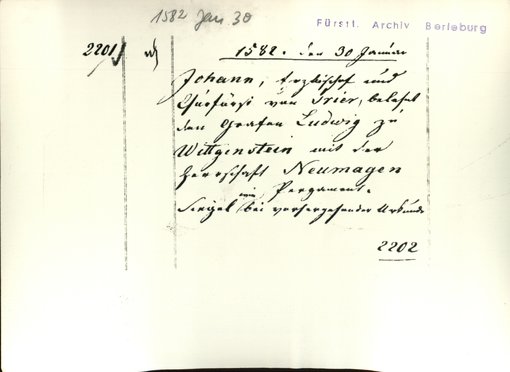 1582 Jan 30
Fürstl. Archiv Berleburg
2201
1582. den 30 Januar
Johann, Erzbischof und
Churfürst von Trier, belehnt
den Grafen Ludwig zu
Wittgenstein mit der
Herrschaft Neumagen
Pergament.
Siegel wie bei vorhergehender Urkunde
2202